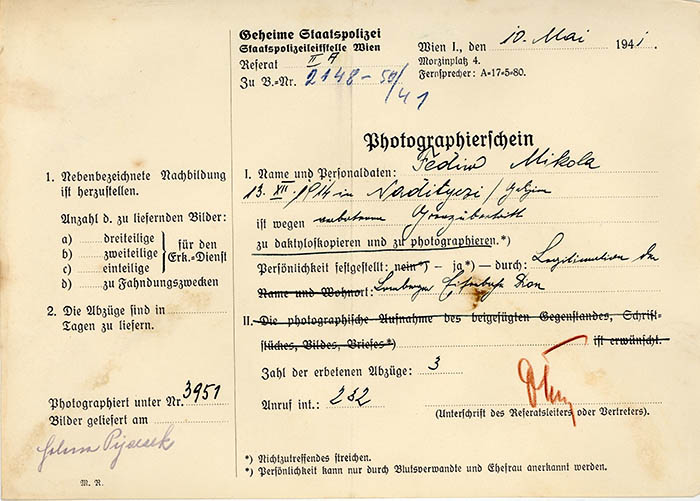 Geheime Staatspolizei
Staatspolizeileitstelle Wien
Referat II A
Zu B.=Nr. 2148-50/41
Wien I., den 10. Mai 1941.
Morzinplatz 4.
Fernsprecher: A=17=5=80.
Photographierschein
1. Nebenbezeichnete Nachbildung
ist herzustellen.
Anzahl d. zu liefernden Bilder:
a) ........ dreiteilige
b) ........ zweiteilige
c) ........ einteilige
für den
Erk.=Dienst
d) ........ zu Fahndungszwecken
2. Die Abzüge sind in
Tagen zu liefern.
Photographiert unter Nr. 3951
Bilder geliefert am
M. R.
I. Name und Personaldaten: Fediw Mikola
13. XII. 1914 in
ist wegen
zu daktyloskopieren und zu photographieren.*)
Persönlichkeit festgestellt: nein*) – ja*) – durch: Legitimation der
Name und Wohnort: Lemberger Eisenbahn Dion
II. Die photographische Aufnahme des beigefügten Gegenstandes, Schrift-
stückes, Bildes, Briefes*) ist erwünscht.
Zahl der erbetenen Abzüge: 3
Anruf int.: 252
(Unterschrift des Referatsleiters oder Vertreters).
*) Nichtzutreffendes streichen.
*) Persönlichkeit kann nur durch Blutsverwandte und Ehefrau anerkannt werden.